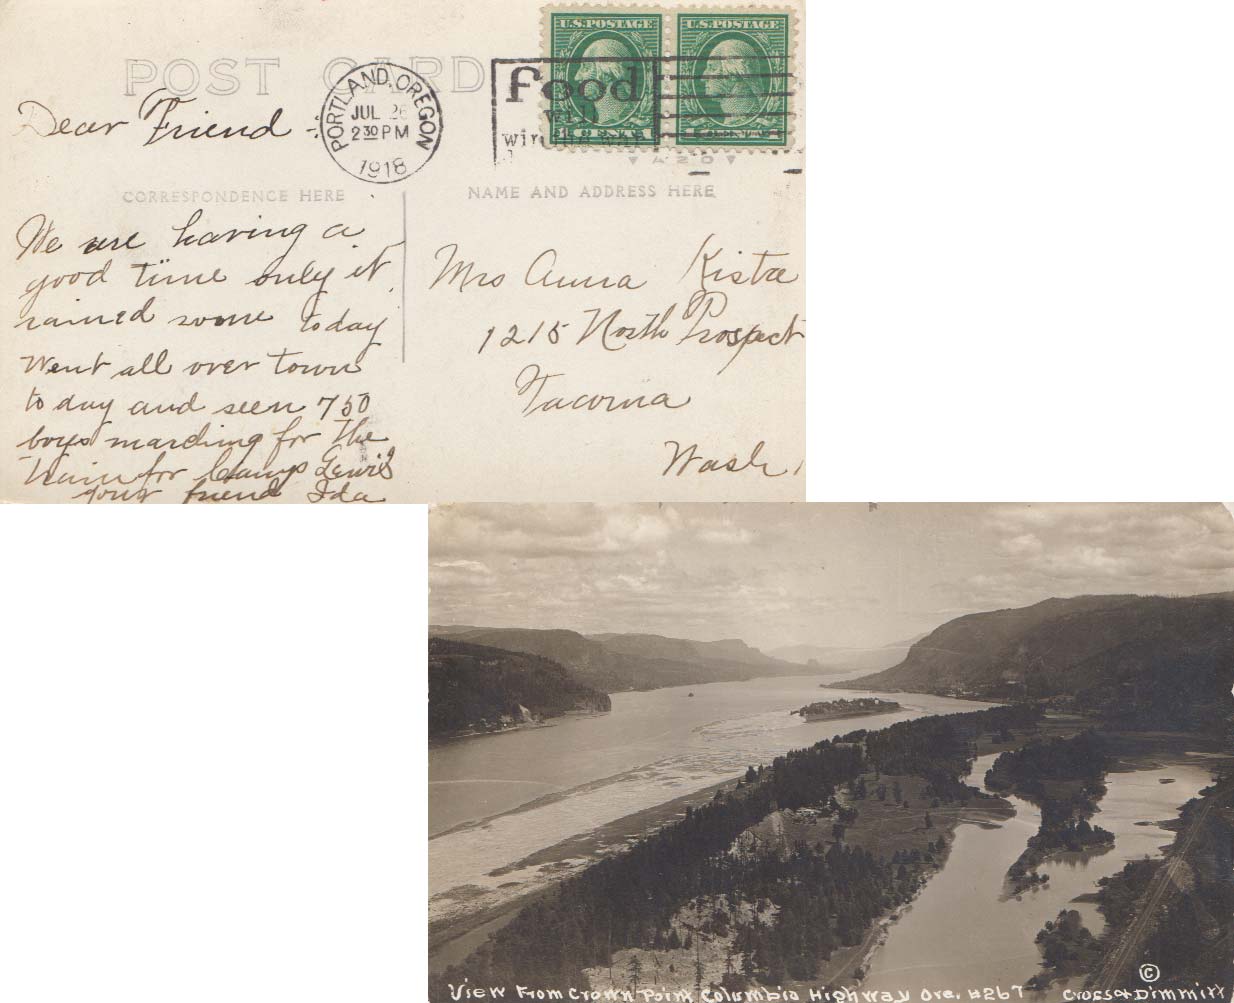 POST CARD
Dear Friend -
PORTLAND, OREGON
JUL 26
2 30 PM
1918
Food
will
win the war
U.S. POSTAGE
U.S. POSTAGE
1 CENT 1
AZO
CORRESPONDENCE HERE
NAME AND ADDRESS HERE
We are having a
good time only it
rained some today
Went all over town
to day and seen 750
boys marching for the
train for Camp Lewis
your friend Ida
Mrs Anna Kistee
1215 North Prospect
Tacoma
Wash
View From Crown Point Columbia Highway Ore. #267
© Cross & Dimmitt